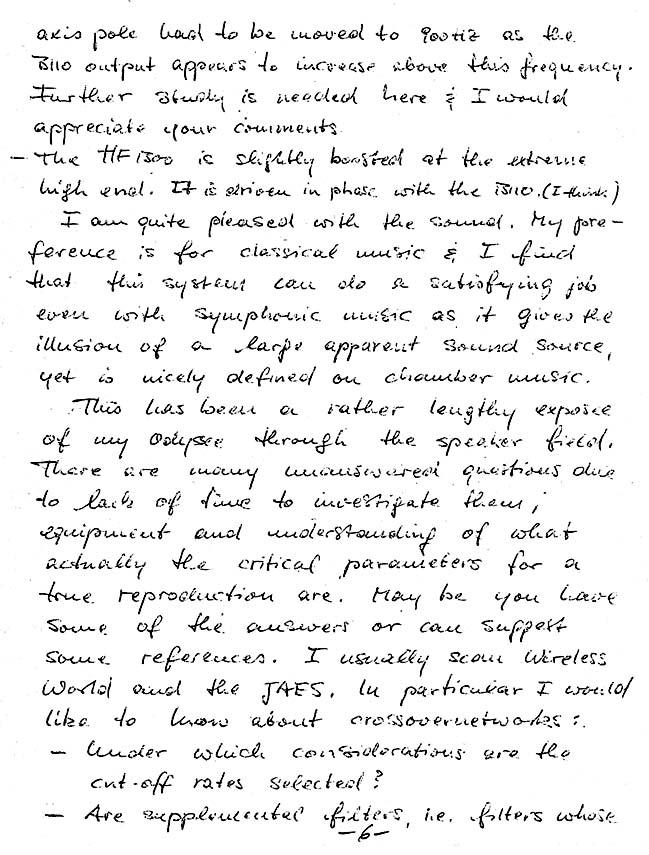 axis pole had to be moved to 900Hz as the
B110 output appears to increase above this frequency.
Further study is needed here & I would
appreciate your comments
- The HF1300 is slightly boosted at the extreme
high end. It is driven in phase with the B110. (I think)
I am quite pleased with the sound. My pre-
ference is for classical music & I find
that this system can do a satisfying job
even with symphonic music as it gives the
illusion of a large apparent sound source,
yet is nicely defined on chamber music.
This has been a rather lengthy exposee
of my Odysee through the speaker field.
There are many unanswared questions due
to lack of time to investigate them,
equipment and understanding of what
actually the critical parameters for a
true reproduction are. May be you have
some of the answers or can suggest
some references. I usually scan Wireless
World and the JAES. In particular I would
like to know about crossovernetworks:
- Under which considerations are the
cut-off rates selected?
- Are supplemental filters, i.e. filters whose
-6-